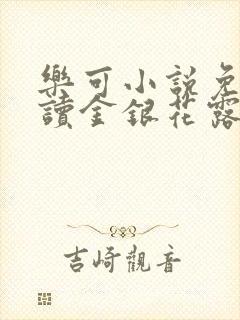 樂可小說免
讀金銀花露
吉崎觀音